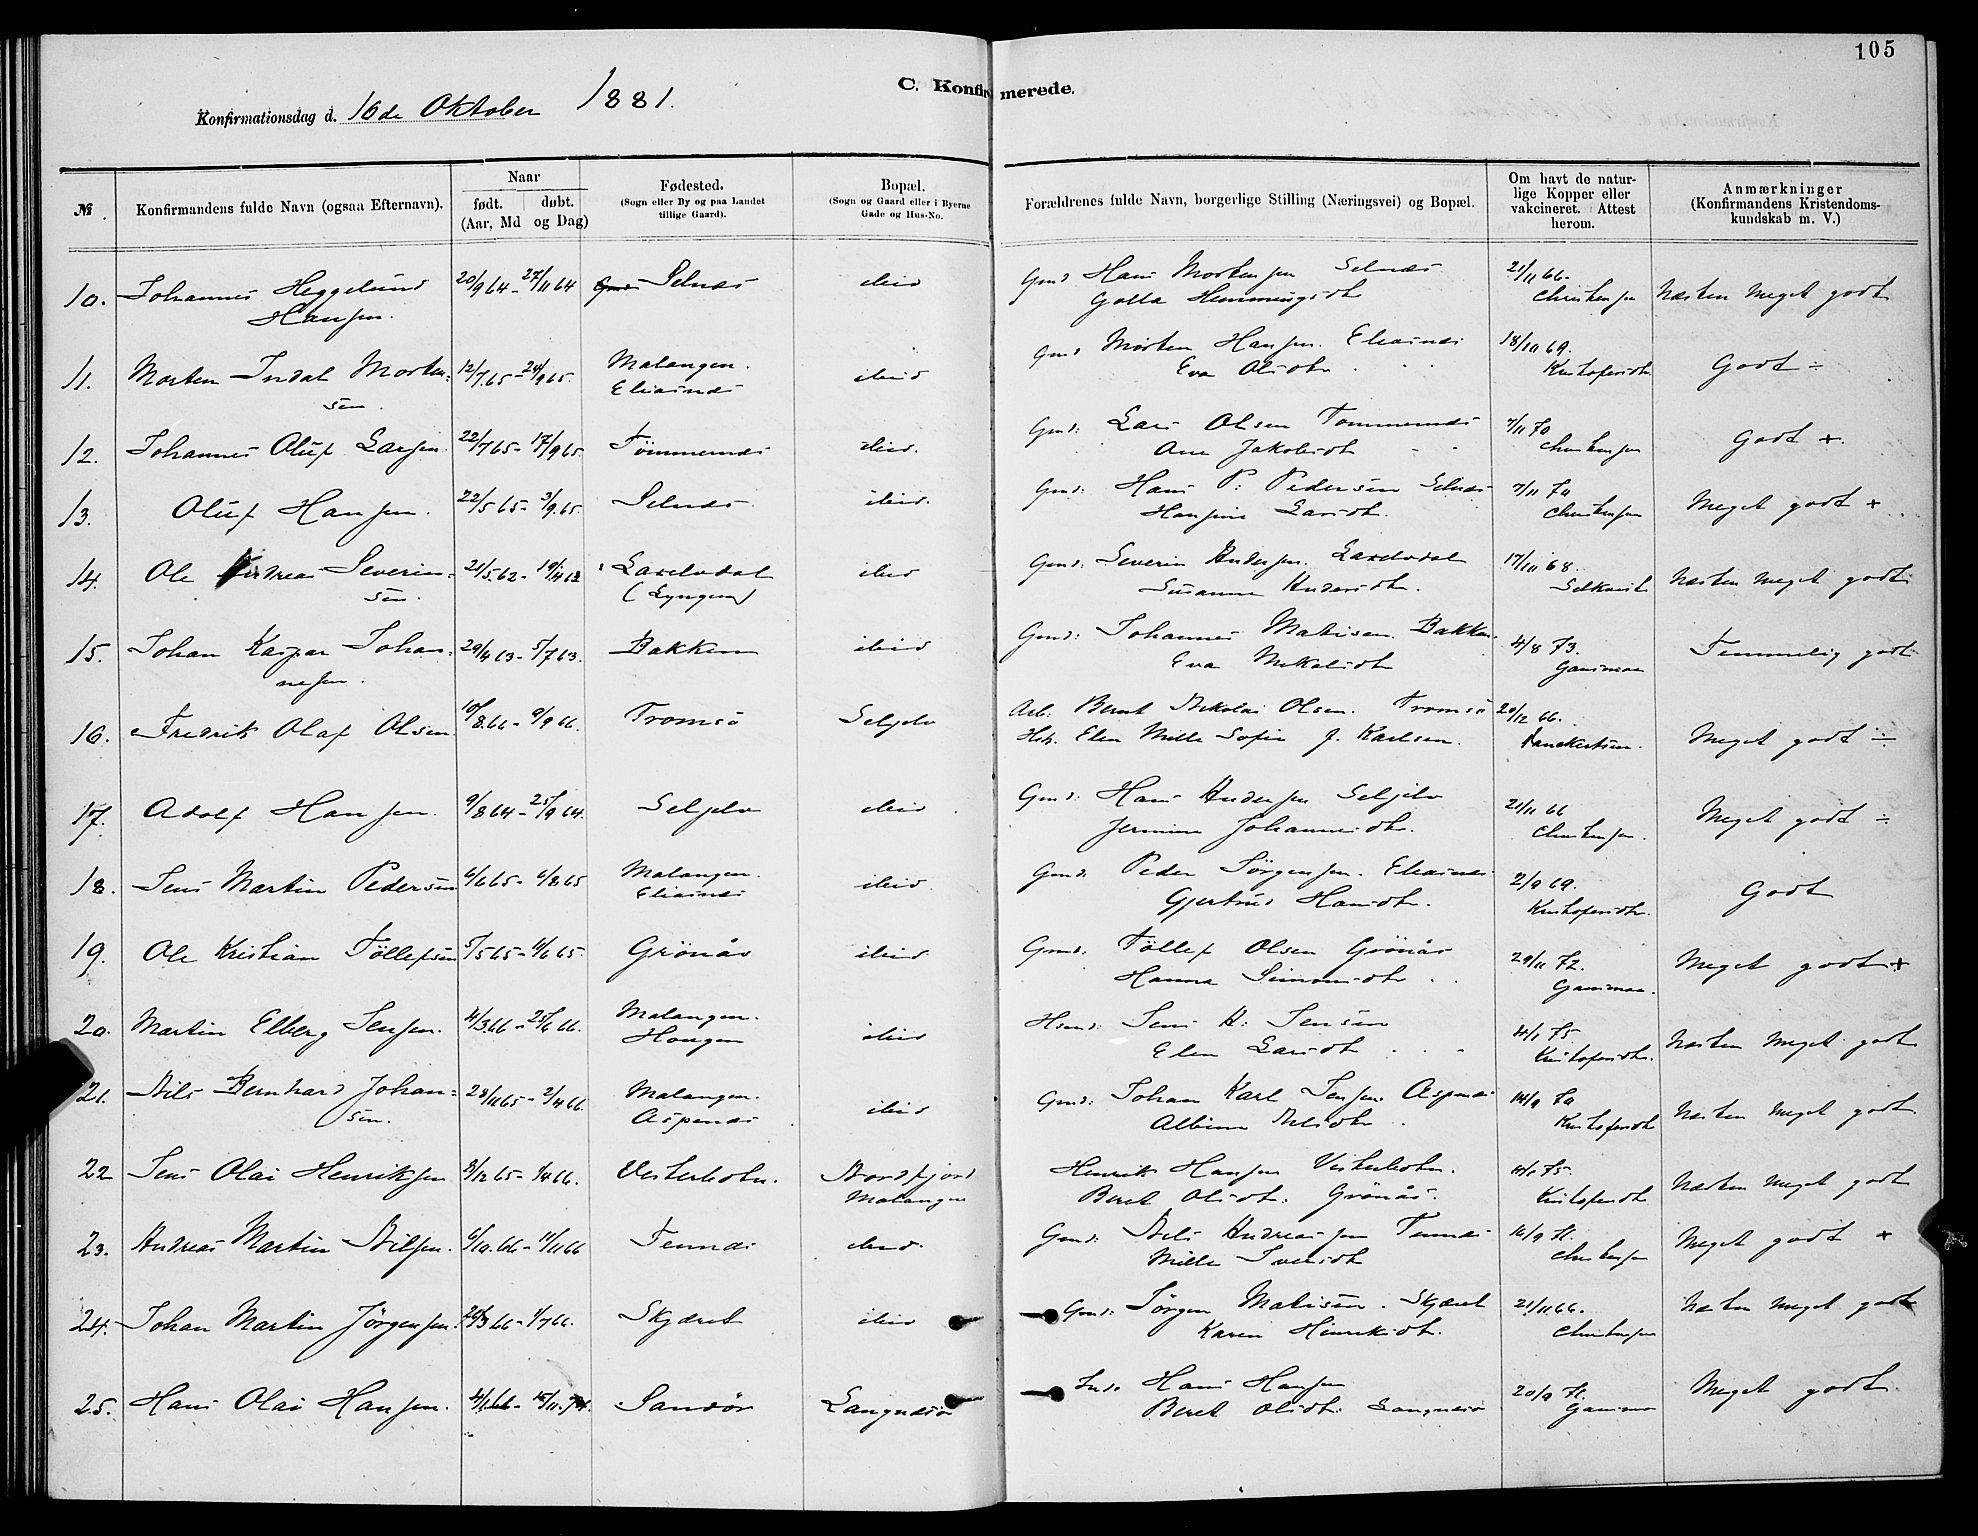 105
C. Konfirmerede.
Konfirmationsdag d. 16de Oktober 1881.
№ | Konfirmandens fulde Navn (ogsaa Efternavn). | Naar født. døbt. (Aar, Md og Dag) | Fødested. (Sogn eller By og paa Landet tillige Gaard). | Bopæl. (Sogn og Gaard eller i Byerne Gade og Hus-No. | Forældrenes fulde Navn, borgerlige Stilling (Næringsvei) og Bopæl. | Om havt de naturlige Kopper eller vakcineret. Attest herom. | Anmærkninger (Konfirmandens Kristendomskundskab m. V.)
10. Johannes Heggelund 20/9 64 - 27/11 64 Selnæs ibid Gmd Hans Mortensen Selnæs 21/11 66.
Hansen. Hemmingsdt Christensen Næsten Meget godt
11. Morten Indal Morten- 12/7 65 - 24/9 65. Malangen. ibid Gmd Morten Hansen. Eliasnæs 18/10 69. Godt ÷
sen. Eliasnæs Eva Olsdtr Kristofersdtr
12. Johannes Oluf Larsen 22/7 65 - 17/9 65. Tömmernæs ibid. Gmd: Lars Olsen Tommernæs 7/11 70 Godt +
Ane Jakobsdtr Christensen
13. Oluf Hansen. 22/5 65 - 3/9 65. Selnæs ibid. Gmd: Hans P. Pedersen Selnæs 7/11 70 Meget godt +
Hansine Larsdtr. Christensen
14. Ole Andreas Severin- 21/5 62 - Laxelvdal ibid Gmd: Severin Andersen. Laxelvdal 17/10 68. Næsten meget godt
sen. (Lyngen) Susanne Andersdtr.
15. Johan Kaspar Johan- 29/4 63 - 5/7 63. Bakken ibid Gmd: Johannes Mathisen Bakken. 4/8 73. Temmelig godt
nesen. Eva Mikalsdtr
16. Fredrik Olaf Olsen 10/8 66 - 9/9 66. Tromsö Seljelv Arb: Bernt Nikolai Olsen. Tromsö 20/12 66.
Hst. Elen Mille Sofie f. Karlsen. Meget godt ÷
17. Adolf Hansen. 9/8 64 - 25/9 64. Seljelv ibid Gmd: Hans Andersen Seljelv 21/11 66 Meget godt ÷
Jermine Johannesdtr. Christensen.
18. Jens Martin Pedersen 6/6 65 - 6/8 65 Malangen. ibid. Gmd. Peder Jörgensen. Eliasnæs 2/9 69. Godt
Eliasnæs Gjertrud Hansdtr. Kristofersdtr.
19. Ole Kristian Töllefsen 5/5 65 - 11/6 65. Grönås ibid. Gmd: Töllef Olsen Grönås 29/11 72. Meget godt +
Hanna Simonsdtr
20. Martin Elberg Jensen. 4/3 66 - 25/6 66. Malangen. ibid Hsmd: Jens A. Jensen 4/1 75. Næsten meget godt
Haugen Elen Larsdtr Kristofersdtr.
21. Nils Bernhard Johan- 28/11 65 - 2/4 66. Malangen. ibid Gmd: Johan Karl Jensen. Aspenæs 14/9 70 Næsten meget godt
sen. Aspenæs Albine Nilsdtr Kristofersdtr
22 Jens Olai Henriksen 3/12 65 - 1/4 66. Vesterbotn. Nordfjord Henrik Hansen Vesterbotn. Næsten meget godt
Malangen Beret Olsdtr. Grönås. Kristofersdtr
23. Andreas Martin Nilsen. 6/10 66 - 11/11 66 Tennæs ibid. Gmd: Nils Andreassen Tennæs Meget godt +
Mille Iversdtr Christensen
24. Johan Martin Jörgensen. 20/3 66 - 1/7 66. Skjæret ibid Gmd: Jörgen Mathisen. Skjæret 21/11 66. Næsten meget godt
Karen Henriksdtr. Christensen
25. Hans Olai Hansen. 4/1 66 - Sandör Langnesör Inds. Hans Hansen 20/9 71. Meget godt.
Beret Olsdtr. Langnesör